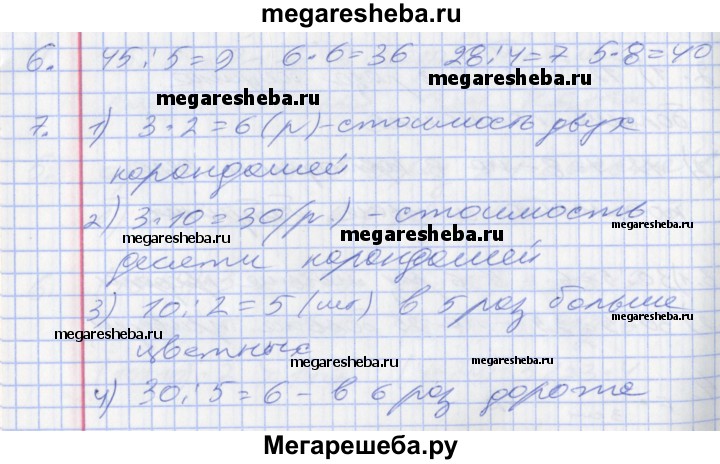 megaresheba.ru
6. 45:5=9 6·6=36 28:4=7 5·8=40
megaresheba.ru megaresheba.ru
7. 1) 3·2=6 (р)-стоимость двух
карандашей
2) 3·10=30(р.) - стоимость
megaresheba.ru megaresheba.ru megaresheba.ru
десяти карандашей
3) 10:2=5 (шт) в 5 раз больше
megaresheba.ru megaresheba.ru megaresheba.ru
цветных
4) 30:5=6 - в 6 раз дороже
Мегарешеба.ру